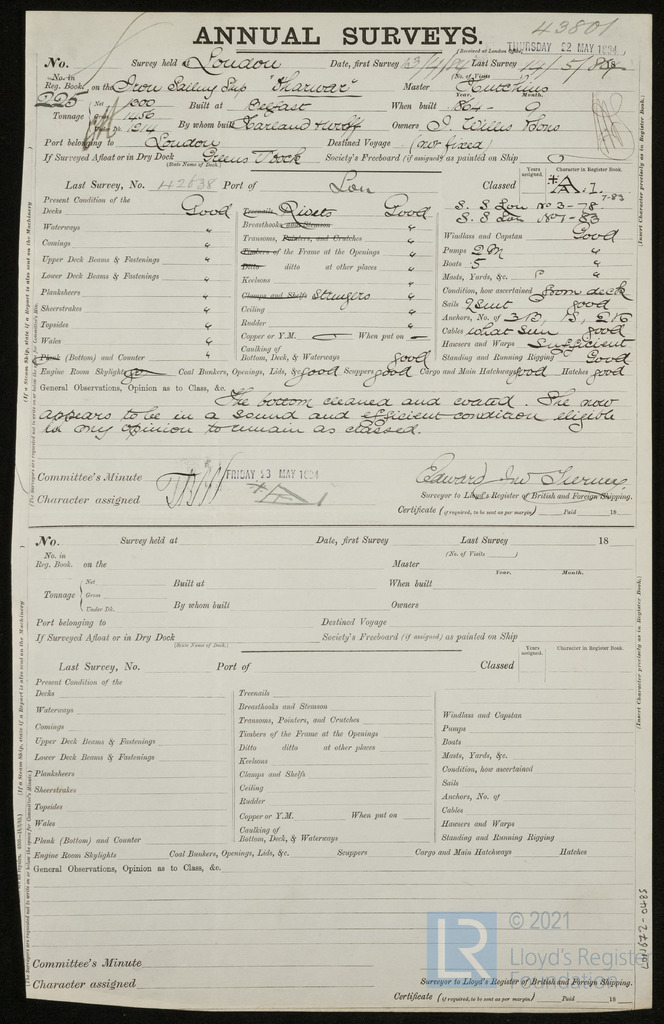 43801
ANNUAL SURVEYS.
(Received at London Office) THURSDAY 22 MAY 1884
No. Survey held at London Date, first Survey Last Survey 14/5/84
(No. of Visits)
No. in Reg. Book. 225 on the Iron Sailing Ship "Tharwar" Master Hutchins
Year. Month.
Tonnage Net 1300 Built at Belfast When built 1864 - 9
Gross 1456
1214 By whom built Harland & Wolff Owners J. Willis & Sons
Port belonging to London Destined Voyage (not fixed)
If Surveyed Afloat or in Dry Dock Greens Dock Society's Freeboard (if assigned) as painted on Ship
(State Name of Dock.)
Last Survey, No. 42638 Port of Lon Classed
Years assigned. Character in Register Book.
*A.1. 7-83
S.S. Lon No 3-78
S.S. Lon No 1-83
Present Condition of the
Decks Good
Waterways "
Comings "
Upper Deck Beams & Fastenings "
Lower Deck Beams & Fastenings "
Planksheers "
Sheerstrakes "
Topsides "
Wales "
Plank (Bottom) and Counter "
Treenails Rivets Good
Breasthooks and Stemson "
Transoms, Pointers, and Crutches "
Timbers of the Frame at the Openings "
Ditto ditto at other places "
Keelsons "
Clamps and Shelfs Stringers "
Ceiling "
Rudder "
Copper or Y.M. When put on
Caulking of Bottom, Deck, & Waterways good
Windlass and Capstan Good
Pumps 2 M "
Boats 5 "
Masts, Yards, &c. "
Condition, how ascertained from deck
Sails 2 Suit good
Anchors, No. of 3B, 1S, 2K
Cables what seen good
Hawsers and Warps Sufficient
Standing and Running Rigging Good
Engine Room Skylights Coal Bunkers, Openings, Lids, &c. good Scuppers good Cargo and Main Hatchways good Hatches good
General Observations, Opinion as to Class, &c.
The bottom cleaned and coated. She now
appears to be in a sound and efficient condition eligible
in my opinion to remain as classed.
Committee's Minute FRIDAY 23 MAY 1884
Character assigned *A1
Surveyor to Lloyd's Register of British and Foreign Shipping.
Certificate (if required, to be sent as per margin) Paid 18
No. Survey held at Date, first Survey Last Survey 18
(No. of Visits )
No. in Reg. Book. on the Master
Year. Month.
Tonnage Net Built at When built
Gross
Under Dk. By whom built Owners
Port belonging to Destined Voyage
If Surveyed Afloat or in Dry Dock Society's Freeboard (if assigned) as painted on Ship
(State Name of Dock.)
Last Survey, No. Port of Classed
Years assigned. Character in Register Book.
Present Condition of the
Decks
Waterways
Comings
Upper Deck Beams & Fastenings
Lower Deck Beams & Fastenings
Planksheers
Sheerstrakes
Topsides
Wales
Plank (Bottom) and Counter
Treenails
Breasthooks and Stemson
Transoms, Pointers, and Crutches
Timbers of the Frame at the Openings
Ditto ditto at other places
Keelsons
Clamps and Shelfs
Ceiling
Rudder
Copper or Y.M. When put on
Caulking of Bottom, Deck, & Waterways
Windlass and Capstan
Pumps
Boats
Masts, Yards, &c.
Condition, how ascertained
Sails
Anchors, No. of
Cables
Hawsers and Warps
Standing and Running Rigging
Engine Room Skylights Coal Bunkers, Openings, Lids, &c. Scuppers Cargo and Main Hatchways Hatches
General Observations, Opinion as to Class, &c.
Committee's Minute
Character assigned
Surveyor to Lloyd's Register of British and Foreign Shipping.
Certificate (if required, to be sent as per margin) Paid 18
(Insert Character precisely as in Register Book.)
(Insert Character precisely as in Register Book.)
LON672-0485
LR © 2021
Lloyd's Register
Foundation